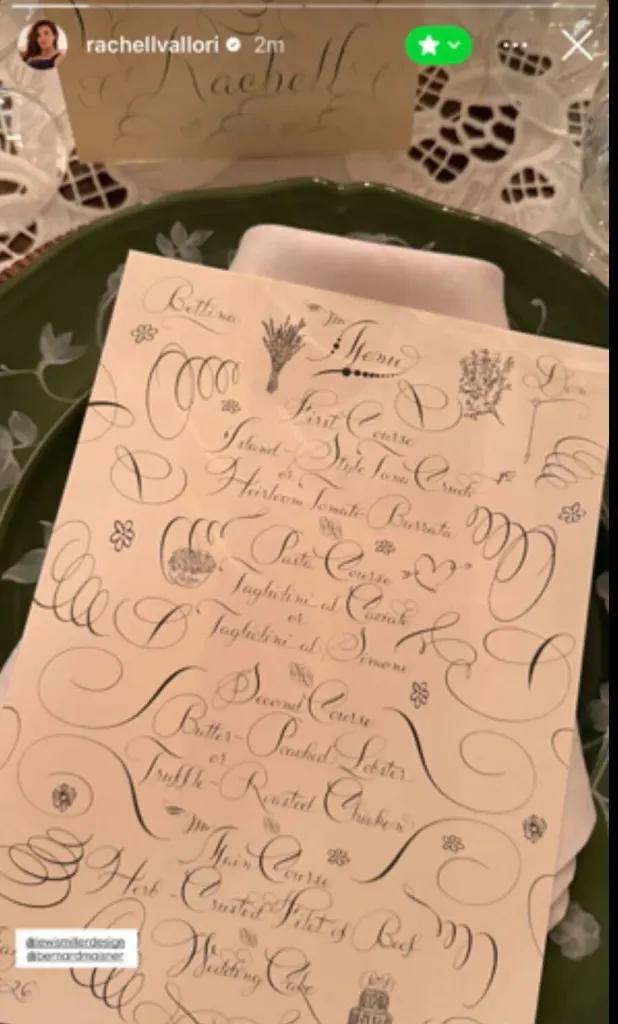 rachellvallori 2m
Rachell
Bettina
Don
Menu
First Course
Island-Style Tuna Crudo
or
Heirloom Tomato Burrata
Pasta Course
Taglielini al Caviale
or
Taglielini al Limone
Second Course
Butter-Poached Lobster
or
Truffle-Roasted Chicken
Main Course
Herb-Crusted Filet of Beef
Wedding Cake
@lewismillerdesign
@bernardmaisner
26